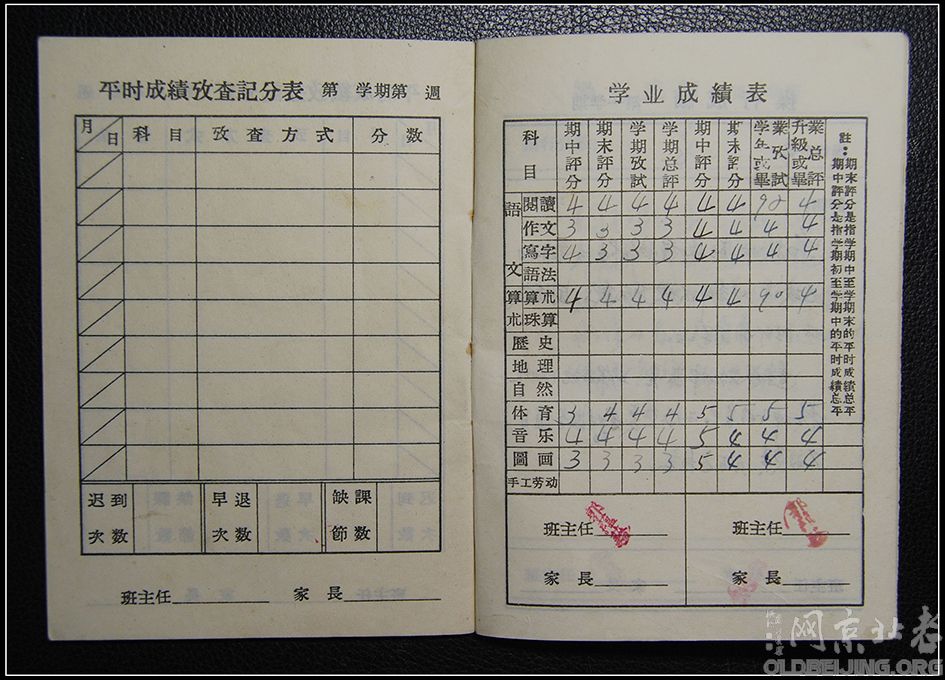 平时成績攷查記分表 第 学期第 週
月 日 科目 攷查方式 分数
迟到次数 早退次数 缺課節数
班主任 家長
学业成績表
科目 期中評分 期末評分 学期攷試 学期总評 期中評分 期末評分 学年或畢業攷試 升級或畢業总評
語文 閱讀 4 4 4 4 4 4 90 4
作文 3 3 3 3 4 4 4 4
寫字 4 3 3 3 4 4 4 4
語法
算朮 算朮 4 4 4 4 4 4 90 4
珠算
歷史
地理
自然
体育 3 4 4 4 5 5 5 5
音乐 4 4 4 4 5 4 4 4
圖画 3 3 3 3 5 4 4 4
手工劳动
註：期中評分是指学期初至学期中的平时成績总平
期末評分是指学期中至学期末的平时成績总平
班主任 班主任
家長 家長
老北京网
OLDBEIJING.ORG